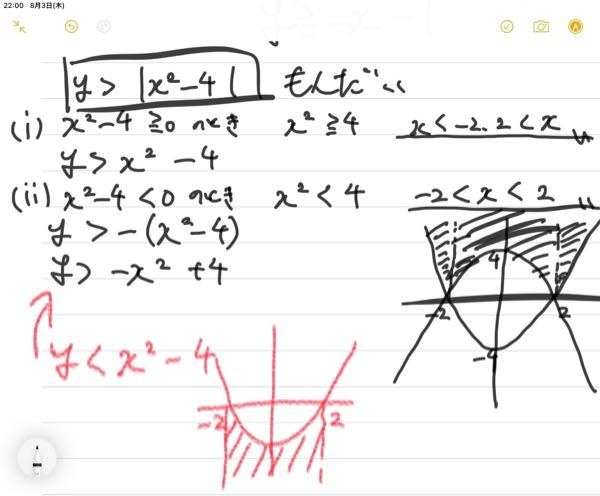 22:00 8月3日(木)
y > |x²-4| もんだい
(i) x²-4≧0 のとき x²≧4 x<-2, 2<x
y > x² -4
(ii) x²-4<0 のとき x²<4 -2<x<2
y > -(x²-4)
y > -x²+4
4
-2 2
-4
y < x²-4
-2 2